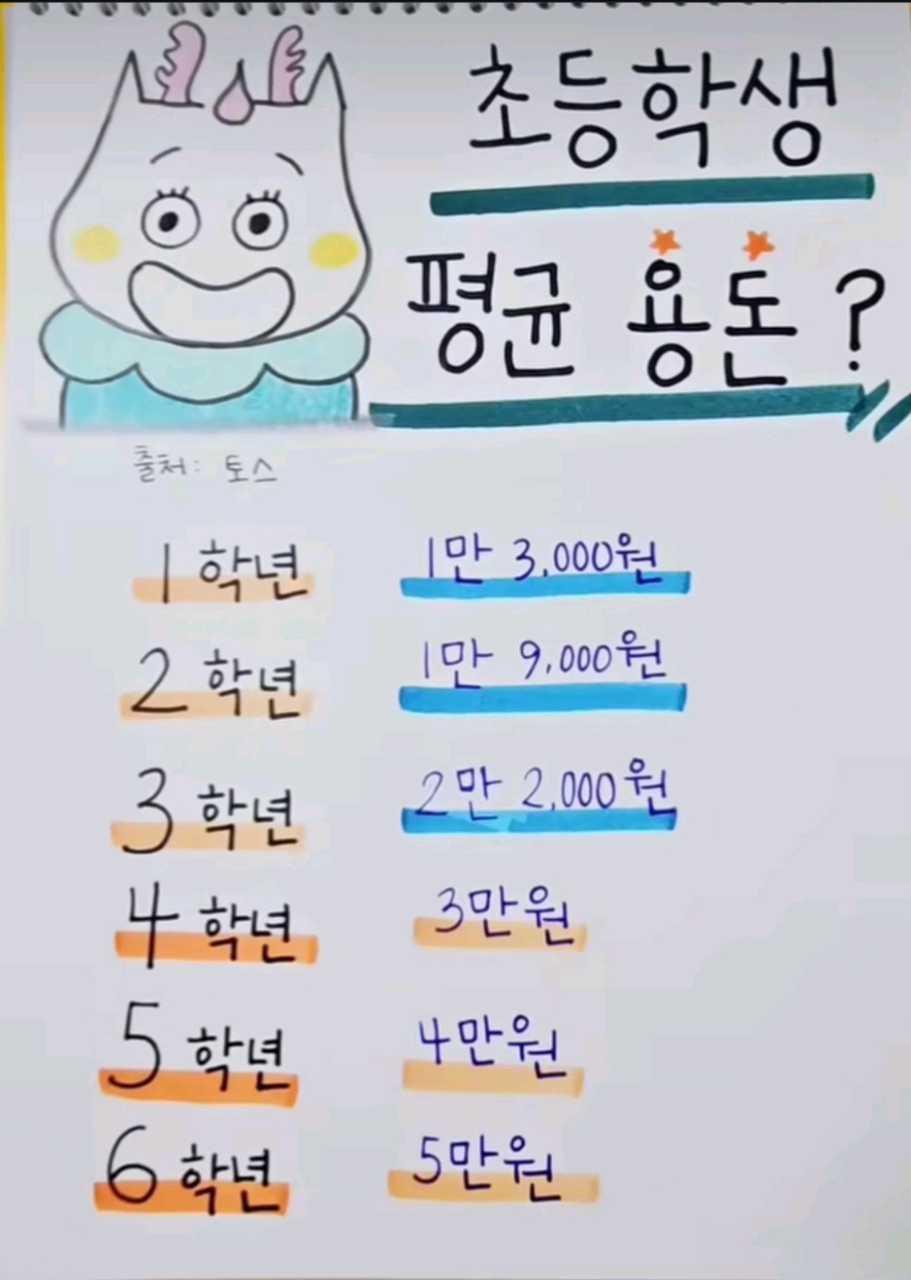 초등학생
평균 용돈?
출처: 토스
1학년 1만 3,000원
2학년 1만 9,000원
3학년 2만 2,000원
4학년 3만원
5학년 4만원
6학년 5만원